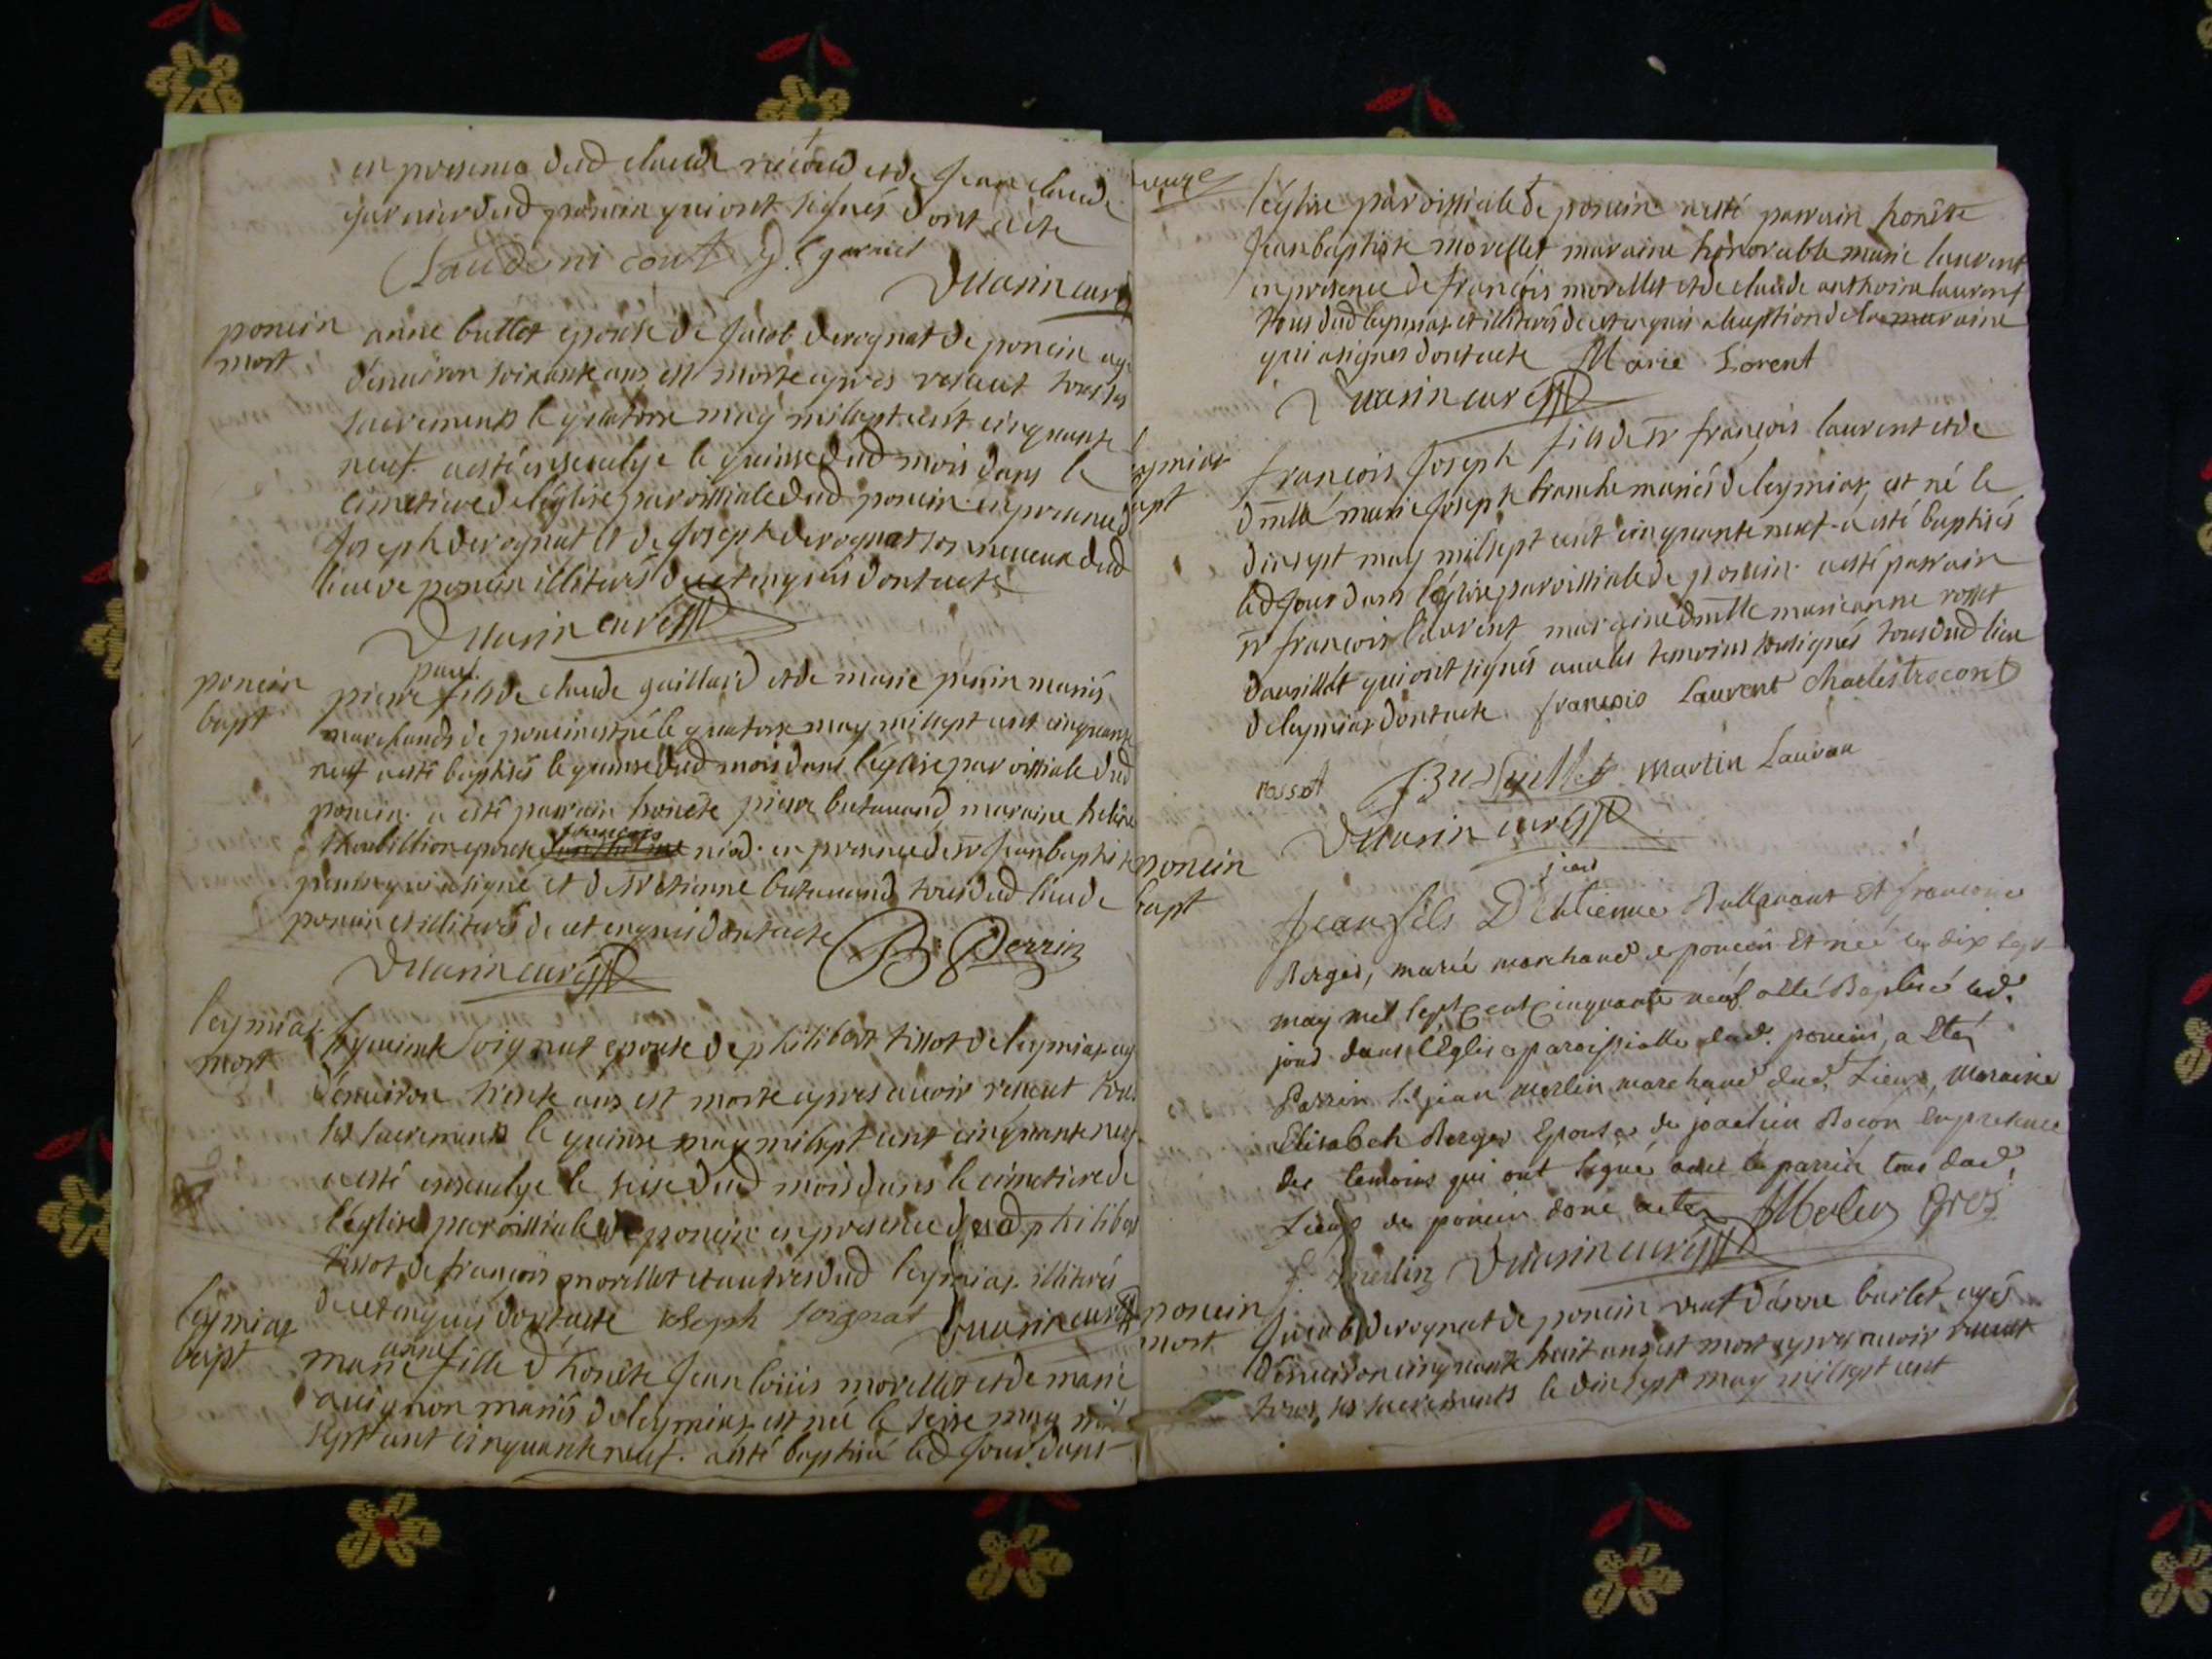 en presence dud claude nicoud et de Jean claude
garnier dud poncin qui ont signés dont acte
Claude ni coud J. C garnier
Duarin curé
poncin
mort
anne bullet epouse de Jacob derognat de poncin agé
d'environ soixante ans est morte apres reseut tous ses
sacrements le quatorze may mil sept cent cinquante
neuf. a esté ensevelye le quinse dud mois dans le
cimetiere de l'église paroissiale dud poncin en presence de
Joseph derognat et de Joseph derognat ses neveux dud
lieu de poncin illiterés de ce enquis dont acte
Duarin curé
poncin
bapt
paul
pierre fils de claude gaillard et de marie perrin mariés
marchands de poncin est né le quatorse may mil sept cent cinquante
neuf a esté baptisés le quinse dud mois dans l'église paroissiale dud
poncin. a esté parrain honéte pierre butavand maraine helene
thoubillion epouse françois niod. en presence de sr Jean baptiste
perrin qui a signé et de sr etienne butavand tous dud lieu de
poncin et illiterés de ce enquis dont acte B. Perrin
Duarin curé
leymiat
mort
hyacinte Soignat epouse de philibert tissot de leymiat agé
d'environ trente ans est morte apres avoir reseut tous
ses sacrements le quinse may mil sept cent cinquante neuf
a esté ensevelye le seise dud mois dans le cimetiere de
l'église paroissiale de poncin en presence dud philibert
tissot de françois morellet et autres dud leymiat illiterés
de ce enquis dont acte Joseph Soignat Duarin curé
leymiat
bapt
anne
marie fille d'honéte Jean loüis morellet et de marie
avignon mariés de leymiat est née le seise may mil
sept cent cinquante neuf. a esté baptisée led jour dans
l'église paroissiale de poncin a esté parrain honéte
Jean baptiste morellet maraine honorable marie laurent
en presence de françois morellet et de claude anthoine laurent
tous dud leymiat et illiterés de ce enquis a l'exeption de la maraine
qui a signés dont acte Marie Lorent
Duarin curé
leymiat
bapt
françois Joseph fils de sr françois laurent et de
dmlle marie Joseph branche mariés de leymiat, est né le
dix sept may mil sept cent cinquante neuf a esté baptisés
led jour dans l'église paroissiale de poncin. a esté parrain
sr françois laurent maraine dmlle marianne rosset
qui ont signés avec les temoins sousignés tous dud lieu
de leymiat dont acte françois Laurent Charles trocon
rosset Martin Lauran
Duarin curé
poncin
bapt
Jean fils D'Etienne Buttavant Et françoise
Berger, marié marchand de poncin Et né le dix sept
may mil sept Cent Cinquante neuf a Eté Baptisé led.
jour dans L'Eglise paroissialle dud. poncin, a Eté
Parrin Sr jean merlin marchand dud. Lieux, maraine
Elisabeth Berger Epouse de joachin Bocon En presence
des temoins qui ont signé avec le parrin tous dud.
Lieux de poncin donc acte JMerlin
J. merlin Duarin curé
poncin
mort
Jacob derognat de poncin veuf d'anne bullet agés
d'environ cinquante huit ans est mort apres avoir reseut
tous ses sacrements le dix sept may mil sept cent